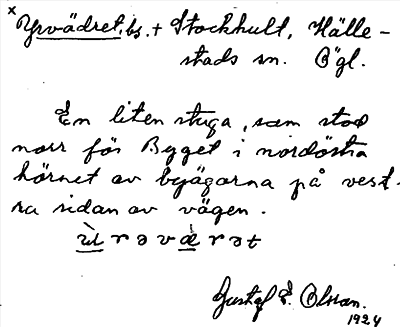 x Yrvädret, bs. + Stockhult, Hälle-
stads sn. Ögl.
En liten stuga, som stod
norr för Bygget i nordöstra
hörnet av bejägorna på vest-
ra sidan av vägen.
Gustaf E. Olsson.
1924